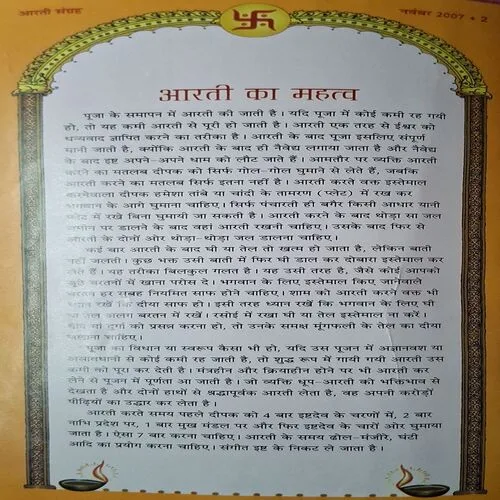 आरती संग्रह
नवंबर 2007 • 2
आरती का महत्व
पूजा के समापन में आरती की जाती है। यदि पूजा में कोई कमी रह गयी
हो, तो यह कमी आरती से पूरी हो जाती है। आरती एक तरह से ईश्वर को
धन्यवाद ज्ञापित करने का तरीका है। आरती के बाद पूजा इसलिए संपूर्ण
मानी जाती है, क्योंकि आरती के बाद ही नैवेद्य लगाया जाता है और नैवेद्य
के बाद इष्ट अपने-अपने धाम को लौट जाते हैं। आमतौर पर व्यक्ति आरती
करने का मतलब दीपक को सिर्फ गोल-गोल घुमाने से लेते हैं, जबकि
आरती करने का मतलब सिर्फ इतना नहीं है। आरती करते वक्त इस्तेमाल
होनेवाला दीपक हमेशा तांबे या चांदी के तामरण (प्लेट) में रख कर
भगवान के आगे घुमाना चाहिए। सिर्फ पंचारती ही बगैर किसी आधार यानी
प्लेट में रखे बिना घुमायी जा सकती है। आरती करने के बाद थोड़ा सा जल
जमीन पर डालने के बाद वहां आरती रखनी चाहिए। उसके बाद फिर से
आरती के दोनों ओर थोड़ा-थोड़ा जल डालना चाहिए।
कई बार आरती के बाद घी या तेल तो खत्म हो जाता है, लेकिन बाती
नहीं जलती। कुछ भक्त उसी बाती में फिर घी डाल कर दोबारा इस्तेमाल कर
लेते हैं। यह तरीका बिलकुल गलत है। यह उसी तरह है, जैसे कोई आपको
जूठे बरतनों में खाना परोस दे। भगवान के लिए इस्तेमाल किए जानेवाले
बरतन हर सुबह नियमित साफ होने चाहिए। शाम को आरती करते वक्त भी
ध्यान रखें कि दीया साफ हो। इसी तरह ध्यान रखें कि भगवान के लिए घी
या तेल अलग बरतन में रखें। रसोई में रखा घी या तेल इस्तेमाल ना करें।
या दुर्गा को प्रसन्न करना हो, तो उनके समक्ष मूंगफली के तेल का दीया
जलाना चाहिए।
पूजा का विधान या स्वरूप कैसा भी हो, यदि उस पूजन में अज्ञानवश या
असावधानी से कोई कमी रह जाती है, तो शुद्ध रूप में गायी गयी आरती उस
कमी को पूरा कर देती है। मंत्रहीन और क्रियाहीन होने पर भी आरती कर
लेने से पूजन में पूर्णता आ जाती है। जो व्यक्ति धूप-आरती को भक्तिभाव से
देखता है और दोनों हाथों से श्रद्धापूर्वक आरती लेता है, वह अपनी करोड़ों
पीढ़ियों का उद्धार कर लेता है।
आरती करते समय पहले दीपक को 4 बार इष्टदेव के चरणों में, 2 बार
नाभि प्रदेश पर, 1 बार मुख मंडल पर और फिर इष्टदेव के चारों ओर घुमाया
जाता है। ऐसा 7 बार करना चाहिए। आरती के समय ढोल-मंजीरे, घंटी
आदि का प्रयोग करना चाहिए। संगीत इष्ट के निकट ले जाता है।